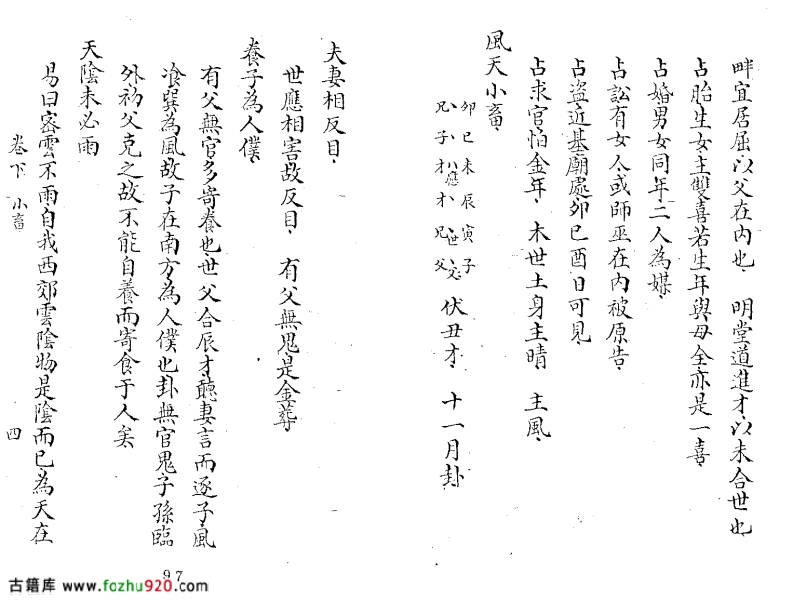 畔宜居屈以父在內也　明堂道進才以未合世也
占胎生女主雙喜若生年與母仝亦是一喜
占婚男女同年二人為媒
占訟有女人或師巫在內被原告
占盜近基廟處卯巳酉日可見
占求官怕金年　木世土身主晴　主風
風天小畜
卯巳未辰寅子
兄子才才兄父
應
世
伏丑才　十一月卦
夫妻相反目
世應相害故反目　有父無鬼是金葬
養子為人僕
有父無官多寄養也世父合辰才聽妻言而逐子風
飡巽為風故子在南方為人僕也卦無官鬼子孫臨
外初父克之故不能自養而寄食于人矣
天陰未必雨
易曰密雲不雨自我西郊雲陰物是陰而已為天在
卷下　小畜　四
97
古籍库 www.fozhu920.com